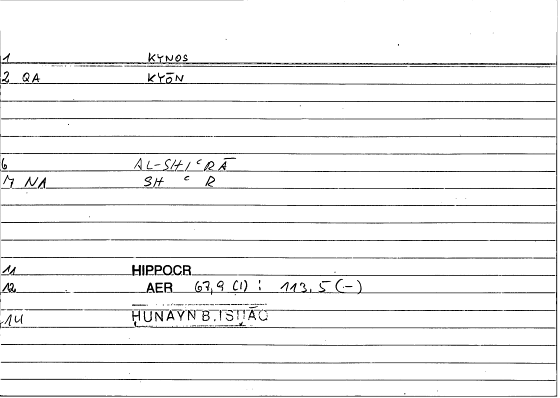 1 KYNOS
2 QA KYŌN
6 AL-SHIᶜRĀ
7 NA SH ᶜ R
11 HIPPOCR
12 AER 67,9 (1) : 113,5 (-)
14 HUNAYN B. ISḤĀQ